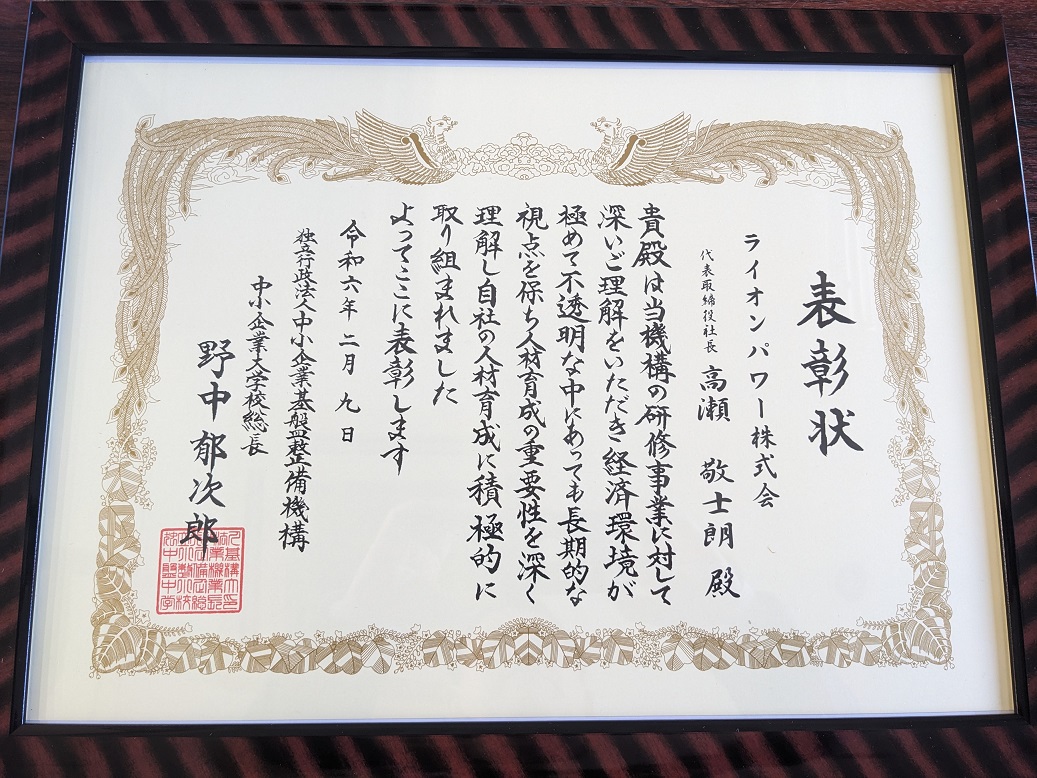 表彰状
ライオンパワー株式会
代表取締役社長 高瀬 敬士朗 殿
貴殿は当機構の研修事業に対して
深いご理解をいただき経済環境が
極めて不透明な中にあっても長期的な
視点を保ち人材育成の重要性を深く
理解し自社の人材育成に積極的に
取り組まれました
よってここに表彰します
令和六年二月九日
独立行政法人中小企業基盤整備機構
中小企業大学校総長
野中郁次郎